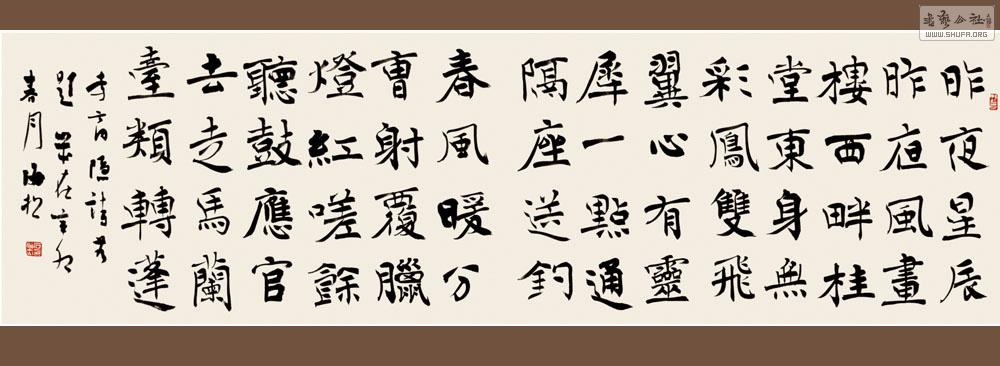 昨夜星辰
昨夜風畫
樓西畔桂
堂東身無
彩鳳雙飛
翼心有靈
犀一點通
隔座送鈎
春風暖分
曹射覆臘
燈紅嗟餘
聽鼓應官
去走馬蘭
臺類轉蓬
李商隱詩
題歲在
春月
書藝公社
WWW.SHUFA.ORG